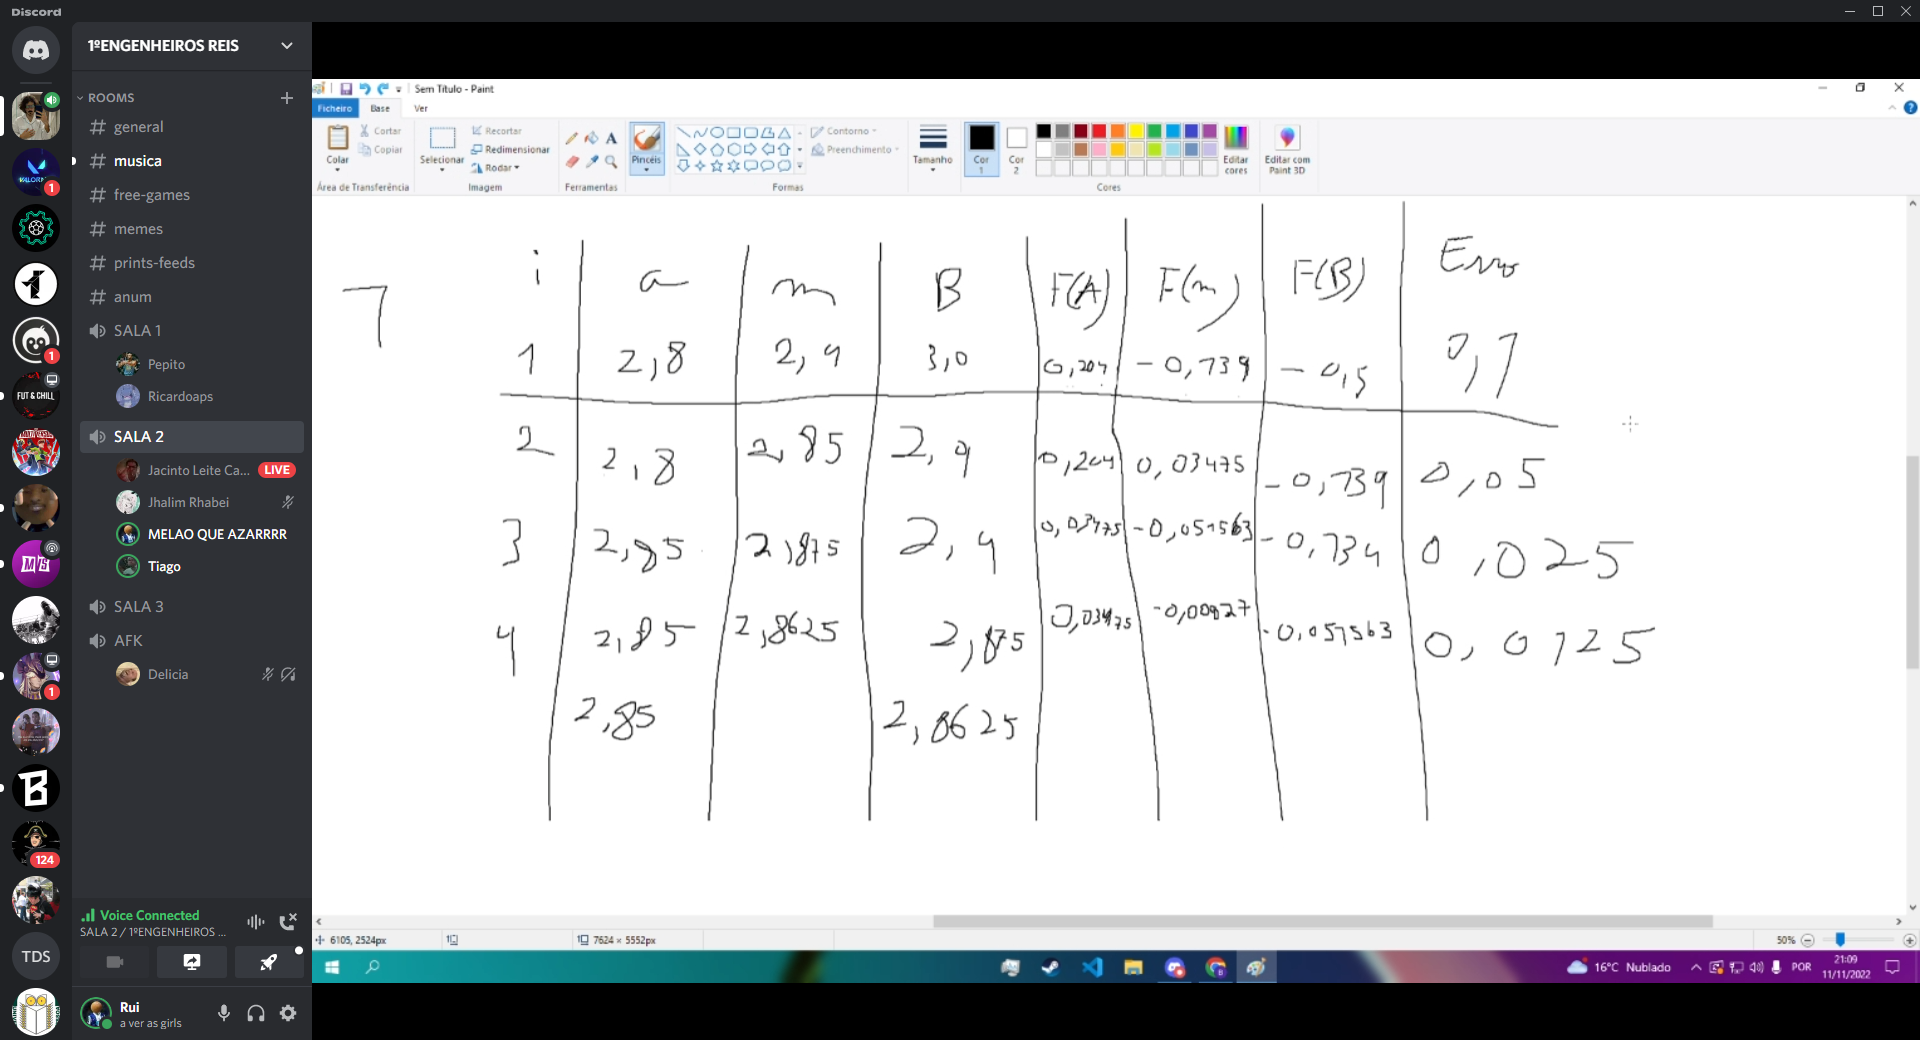 Discord
1ºENGENHEIROS REIS
ROOMS
general
musica
free-games
memes
prints-feeds
anum
SALA 1
Pepito
Ricardoaps
SALA 2
Jacinto Leite Ca... LIVE
Jhalim Rhabei
MELAO QUE AZARRRR
Tiago
SALA 3
AFK
Delicia
Voice Connected
SALA 2 / 1ºENGENHEIROS ...
Rui
a ver as girls
VALOR
1
1
FUT & CHILL
1
124
TDS
Sem Título - Paint
Ficheiro Base Ver
Colar
Cortar
Copiar
Área de Transferência
Selecionar
Recortar
Redimensionar
Rodar
Imagem
Ferramentas
Pincéis
Contorno
Preenchimento
Formas
Tamanho
Cor 1
Cor 2
Editar cores
Editar com Paint 3D
Cores
7
i a m B F(A) F(m) F(B) Erro
1 2,8 2,9 3,0 0,204 -0,739 -0,5 0,1
2 2,8 2,85 2,9 0,204 0,03475 -0,739 0,05
3 2,85 2,875 2,9 0,03475 -0,051563 -0,739 0,025
4 2,85 2,8625 2,875 0,03475 -0,00827 -0,051563 0,0125
2,85 2,8625
6105, 2524px
7624 × 5552px
50%
16°C Nublado
POR
21:09
11/11/2022